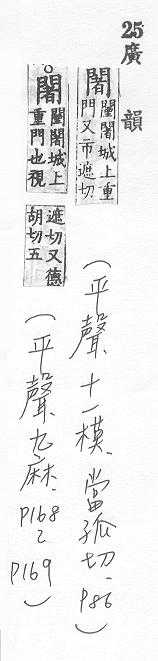 25廣韻
闍 闉闍城上重
門又市遮切
(平聲十一模.當孤切.P86)
闍 闉闍城上
重門也視
遮切又德
胡切五
(平聲九麻.P168~P169)